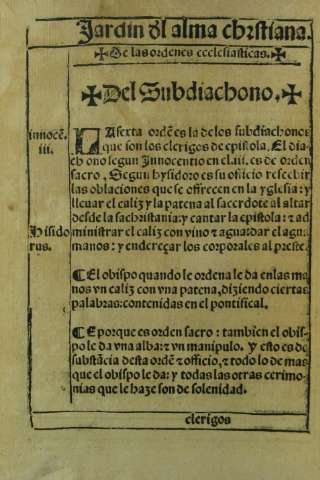 Jardin ďl alma chrstiana.
✠De las ordenes ecclesiasticas.✠
✠Del Subdiachono.✠
innocē.
iii.
LA sexta ordē es la de los subdiachonos
que son los clerigos de epistola. El dia-
chono segun Innocentio en el.iii. es de orden
sacro. Segun hysidoro es su officio rescebir
las oblaciones que se offrecen en la yglesia: y
lleuar el caliz y la patena al sacerdote al altar
desde la sachristania: y cantar la epistola: & ad
Hisido
rus.
ministrar el caliz con vino & aguardar el agu
manos: y endereçar los corporales al preste.
¶El obispo quando le ordena le da enlas ma
nos vn caliz con vna patena, diziendo ciertas
palabras: contenidas en el pontifical.
¶E porque es orden sacro: tambien el obis-
po le da vna alba: & vn manipulo. Y esto es de
substācia desta ordē & officio, & todo lo de mas
que el obispo le da: y todas las otras cerimo-
nias que le haze son de solenidad.
clerigos